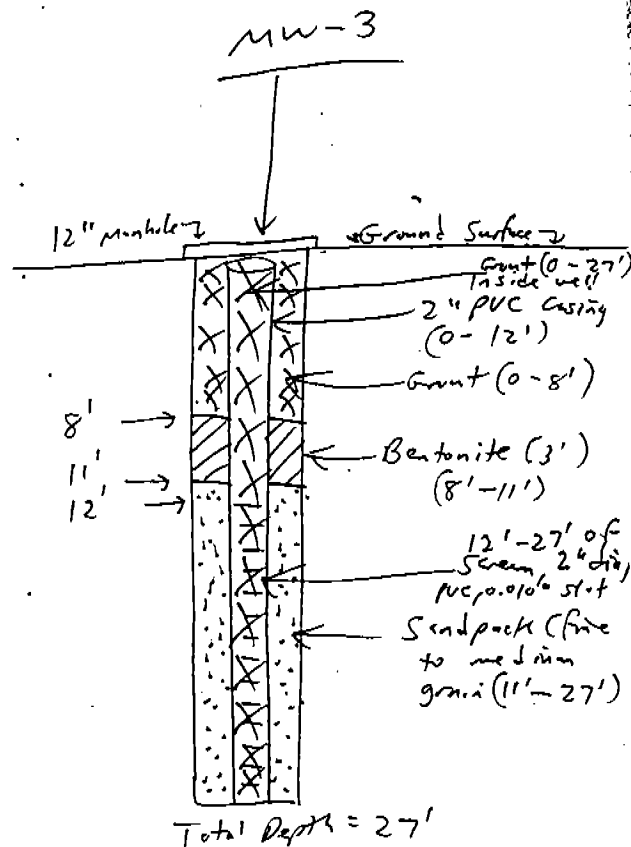 MW-3
12" Manhole
Ground Surface
Grout (0-27')
Inside well
2" PVC Casing
(0-12')
Grout (0-8')
8'
Bentonite (3')
(8'-11')
11'
12'
12'-27' of
Screen, 2" dia,
PVC, 0.010" slot
Sandpack (fine
to medium
grain (11'-27')
Total Depth = 27'